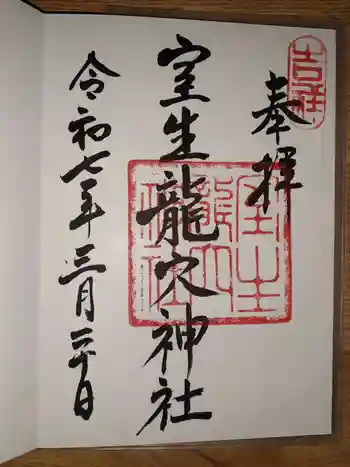 吉祥
奉拝
室生龍穴神社
室生龍穴神社
令和七年三月二十日